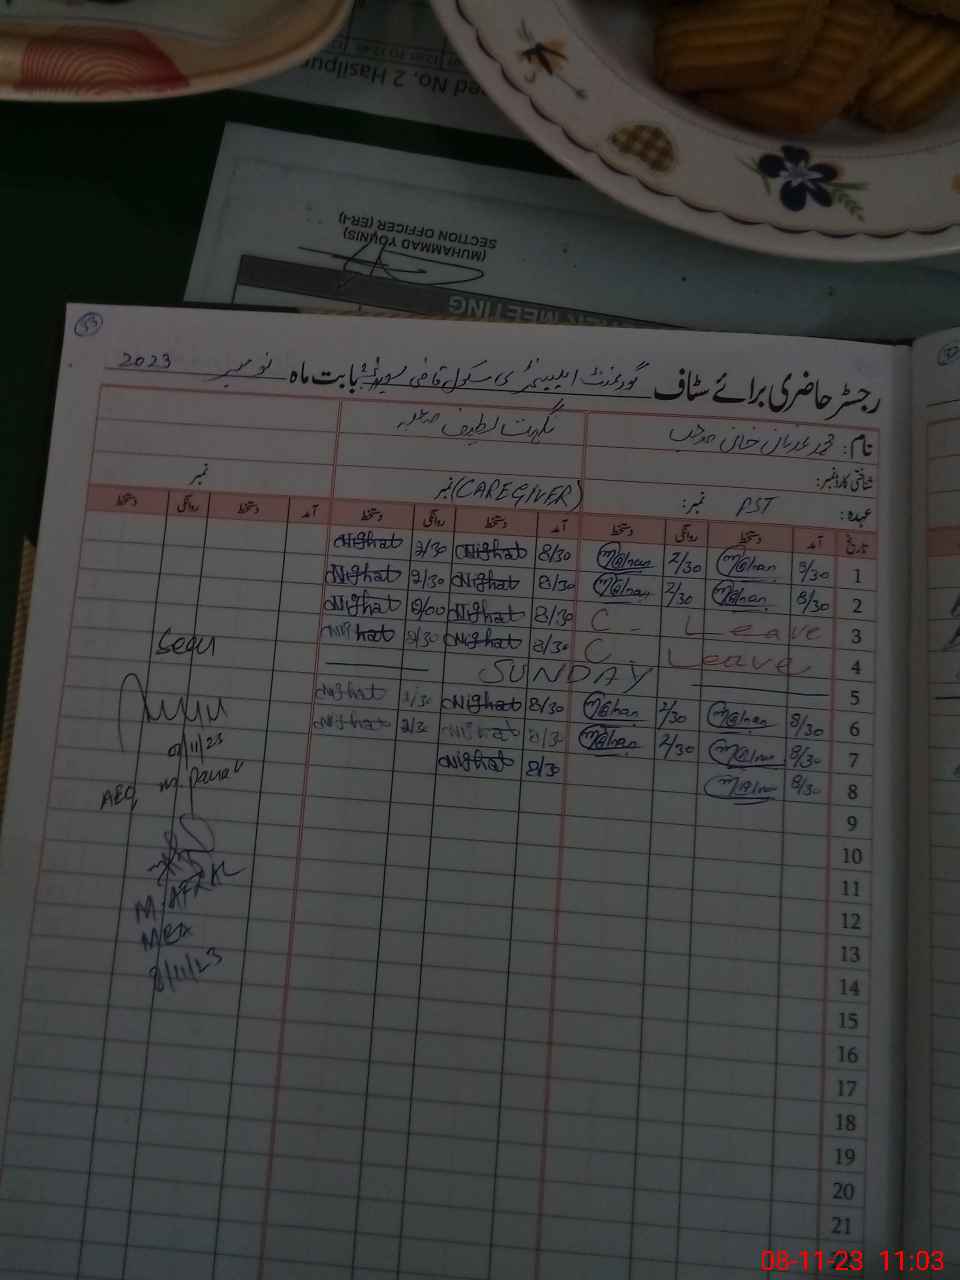 No. 2 Hasilpur
(MUHAMMAD YOUNIS)
SECTION OFFICER (ER-I)
MEETING
33
رجسٹر حاضری برائے سٹاف گورنمنٹ ایلیمنٹری سکول قاضی بابت ماہ نومبر 2023
نام: محمد عدنان خان نگہت لطیف
شناختی کارڈ نمبر:
عہدہ: PST نمبر: (CAREGIVER) نمبر نمبر
تاریخ آمد دستخط روانگی دستخط آمد دستخط روانگی دستخط آمد دستخط روانگی دستخط
1 8/30 2/30 8/30 Nighat 2/30 Nighat
2 8/30 2/30 8/30 Nighat 2/30 Nighat
3 C. Leave 8/30 Nighat Nighat
4 C Leave 8/30 Nighat 2/30 Nighat
5 SUNDAY
6 8/30 2/30 8/30 Nighat 2/30 Nighat
7 8/30 2/30 8/30 Nighat 2/30 Nighat
8 8/30 8/30 Nighat
9
10
11
12
13
14
15
16
17
18
19
20
21
Seen
AEO
M. AFZAL
MEA
8/11/23
08-11-23 11:03